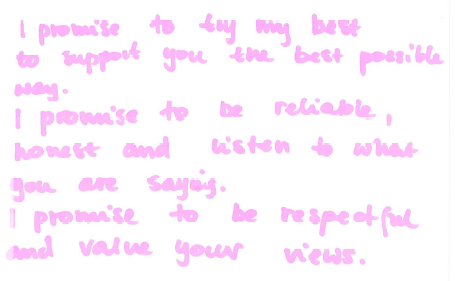 I promise to try my best
to support you the best possible
way.
I promise to be reliable,
honest and listen to what
you are saying.
I promise to be respectful
and value your views.